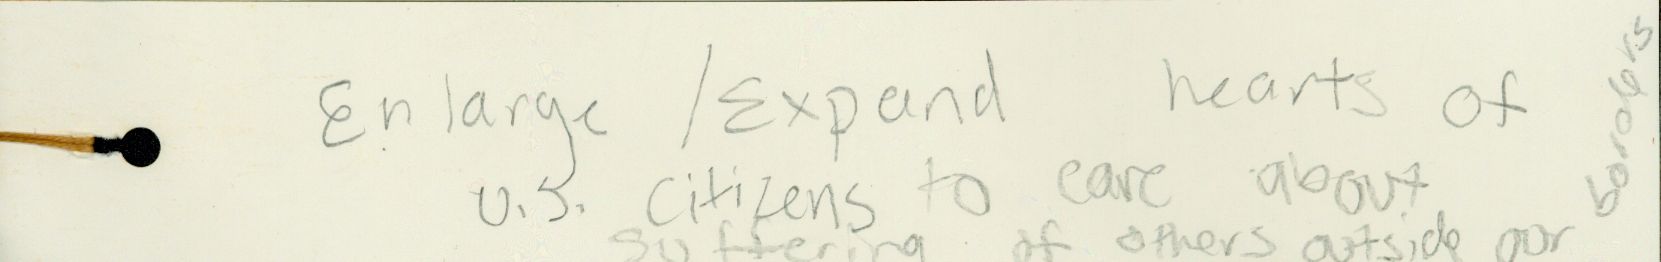 Enlarge / Expand hearts of
U.S. citizens to care about
suffering of others outside our
borders